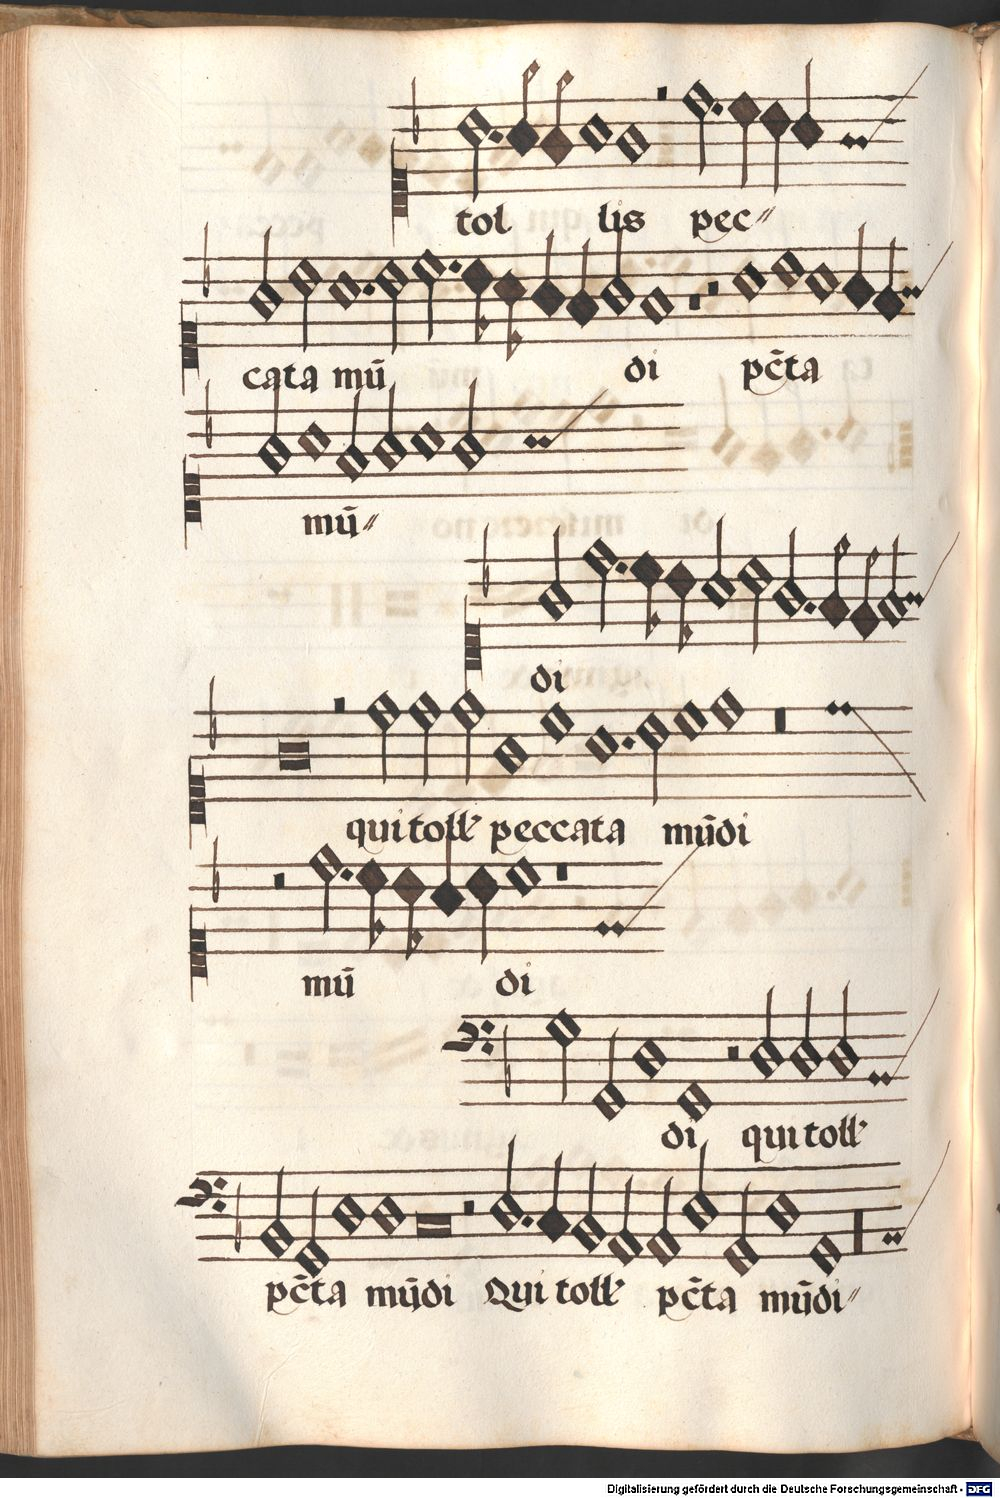 tol lis pec〃
cata mū di pc̄ta
mū〃
di
qui toll' peccata mūdi
mū di
di qui toll'
pc̄ta mūdi Qui toll' pc̄ta mūdi〃
Digitalisierung gefördert durch die Deutsche Forschungsgemeinschaft - DFG